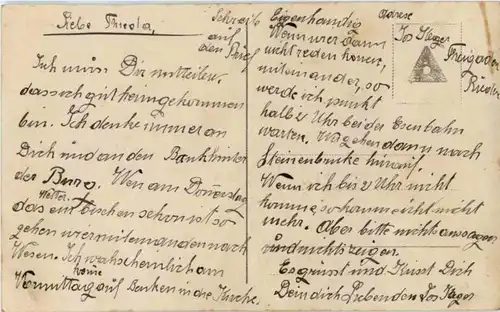 Liebe Thresla,
Ich muss Dir mitteilen,
dass ich gut heimgekommen
bin. Ich denke immer an
Dich und an den Bank hinter
der Burg. Wen am Donerstag
Wetter
das ein bischen schon ist so
gehen wir miteinanden nach
Wesen. Ich wahscheinlich am
keine
Vormittag auf Danken in die Kirche.
Schreib Eigenhandig
auf
den Brief
Adrese
Jos Kleger
Wenn wir dann
nicht reden konen,
miteinander, so
werde ich punkt
halb 2 Uhr bei der Esenbahn
warten. Wo gehen dann nach
Steinenbruke hinauf.
Wenn ich bis 2 Uhr nicht
komme, so komme ich nicht
mehr. Aber bitte nichts ansagen
und nichts zeigen.
Es grüsst und Küsst Dich
Dein dich Liebenden Jos Kleger